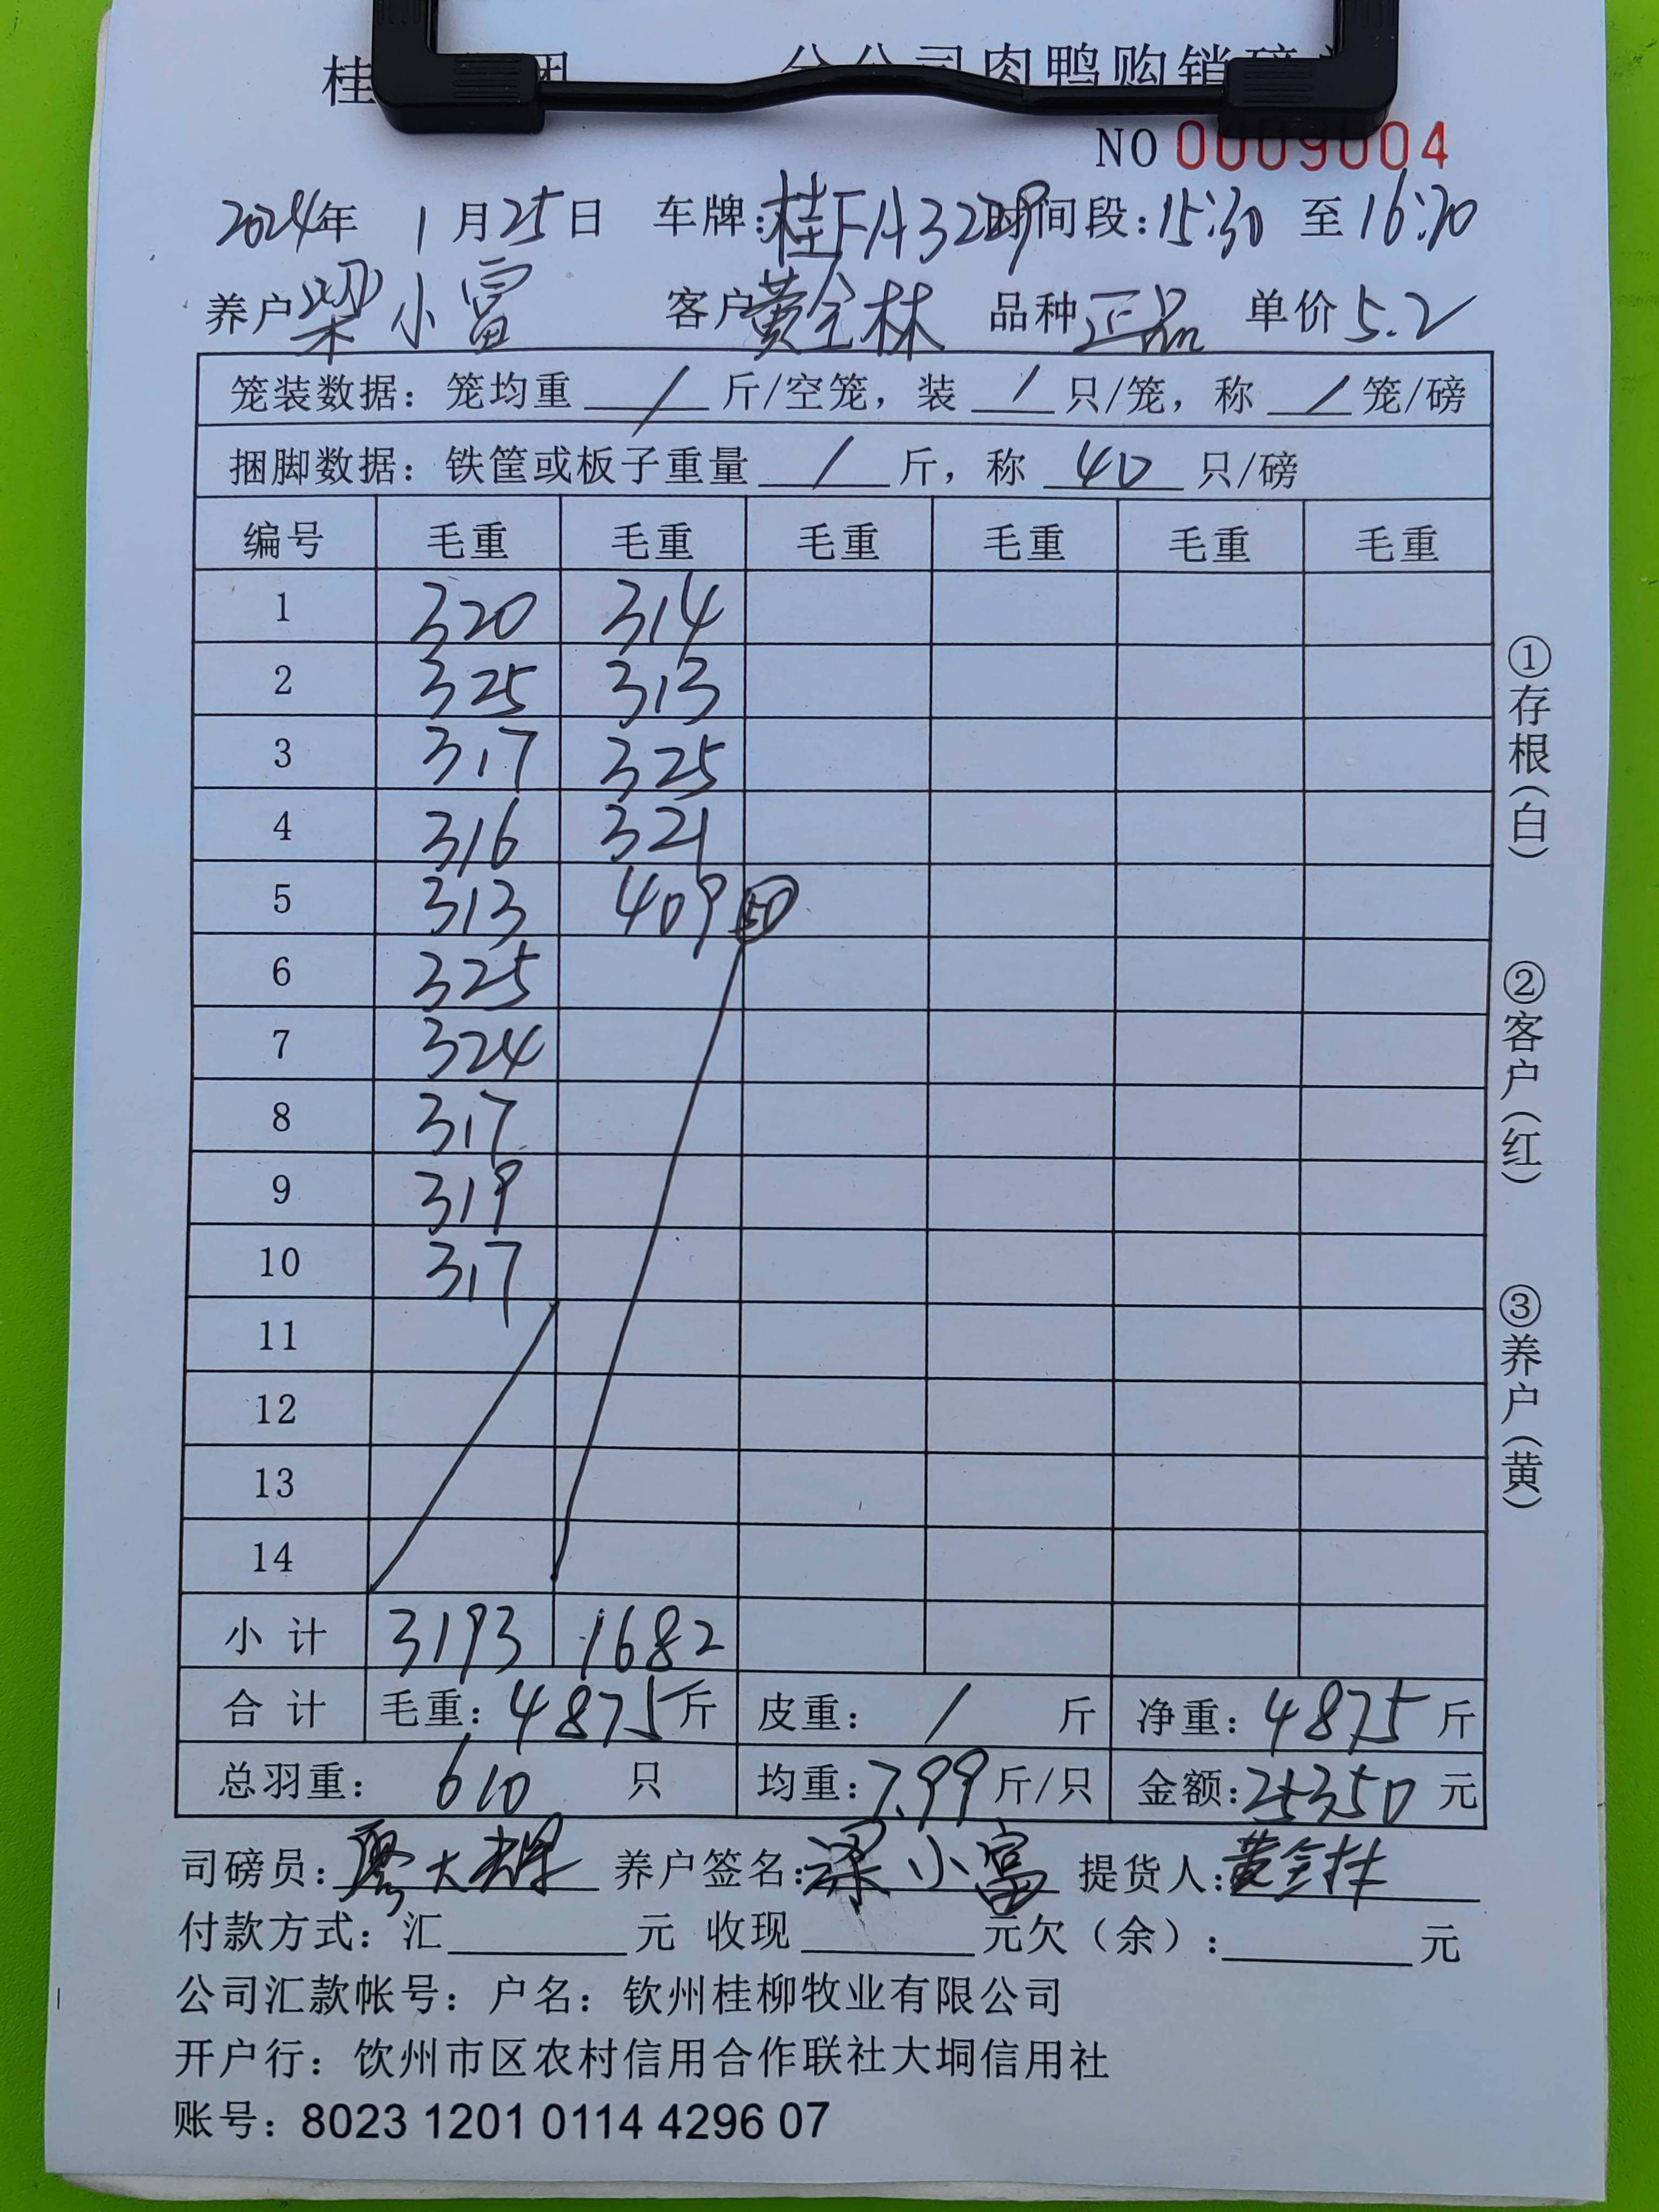 桂 团 分公司肉鸭购销磅
NO 0009004
2024年 1月25日 车牌:桂FA3229 时间段:15:30 至 16:20
养户 梁小富 客户 黄全林 品种 正品 单价 5.2
笼装数据: 笼均重 / 斤/空笼, 装 / 只/笼, 称 / 笼/磅
捆脚数据: 铁筐或板子重量 / 斤, 称 40 只/磅
编号 毛重 毛重 毛重 毛重 毛重 毛重
1 320 314
2 325 313
3 317 325
4 316 321
5 313 409 50
6 325
7 324
8 317
9 319
10 317
11
12
13
14
小计 3193 1682
合计 毛重: 4875斤 皮重: / 斤 净重: 4875斤
总羽重: 610 只 均重: 7.99斤/只 金额:25350元
司磅员:廖大辉 养户签名:梁小富 提货人:黄全林
付款方式: 汇 元 收现 元欠(余): 元
公司汇款帐号: 户名: 钦州桂柳牧业有限公司
开户行: 饮州市区农村信用合作联社大垌信用社
账号: 8023 1201 0114 4296 07
①存根(白)
②客户(红)
③养户(黄)